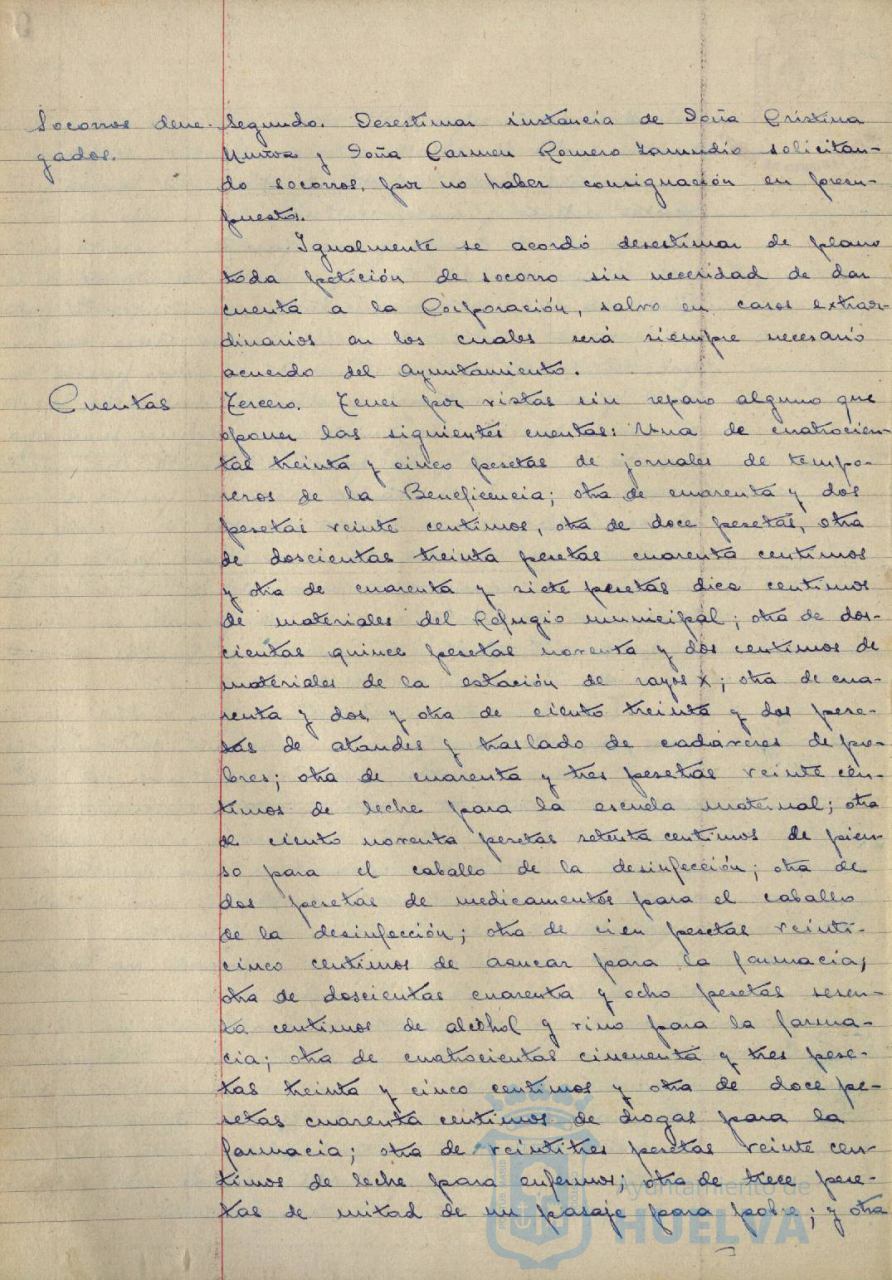 Socorros dene-
gados.
Segundo. Desestimar instancia de Doña Cristina
Muñoz y Doña Carmen Romero Zamudio solicitan-
do socorros, por no haber consignación en presu-
puesto.
Igualmente se acordó desestimar de plano
toda petición de socorro sin necesidad de dar
cuenta a la Corporación, salvo en casos extraor-
dinarios en los cuales será siempre necesario
acuerdo del Ayuntamiento.
Cuentas
Tercero. Tener por vistas sin reparo alguno que
oponer las siguientes cuentas: Una de cuatrocien-
tas treinta y cinco pesetas de jornales de tempo-
reros de la Beneficencia; otra de cuarenta y dos
pesetas veinte centimos, otra de doce pesetas, otra
de doscientas treinta pesetas cuarenta centimos
y otra de cuarenta y siete pesetas diez centimos
de materiales del Refugio municipal; otra de dos-
cientas quince pesetas noventa y dos centimos de
materiales de la estación de rayos X; otra de cua-
renta y dos y otra de ciento treinta y dos pese-
tas de ataudes y traslado de cadáveres de po-
bres; otra de cuarenta y tres pesetas veinte cen-
timos de leche para la escuela maternal; otra
de ciento noventa pesetas setenta centimos de pien-
so para el caballo de la desinfección; otra de
dos pesetas de medicamentos para el caballo
de la desinfección; otra de cien pesetas veinti-
cinco centimos de azucar para la farmacia;
otra de doscientas cuarenta y ocho pesetas sesen-
ta centimos de alcohol y vino para la farma-
cia; otra de cuatrocientas cincuenta y tres pese-
tas treinta y cinco centimos y otra de doce pe-
setas cuarenta centimos de drogas para la
farmacia; otra de veintitres pesetas veinte cen-
timos de leche para enfermos; otra de trece pese-
tas de mitad de un pasaje para pobre; y otra
Ayuntamiento de
HUELVA